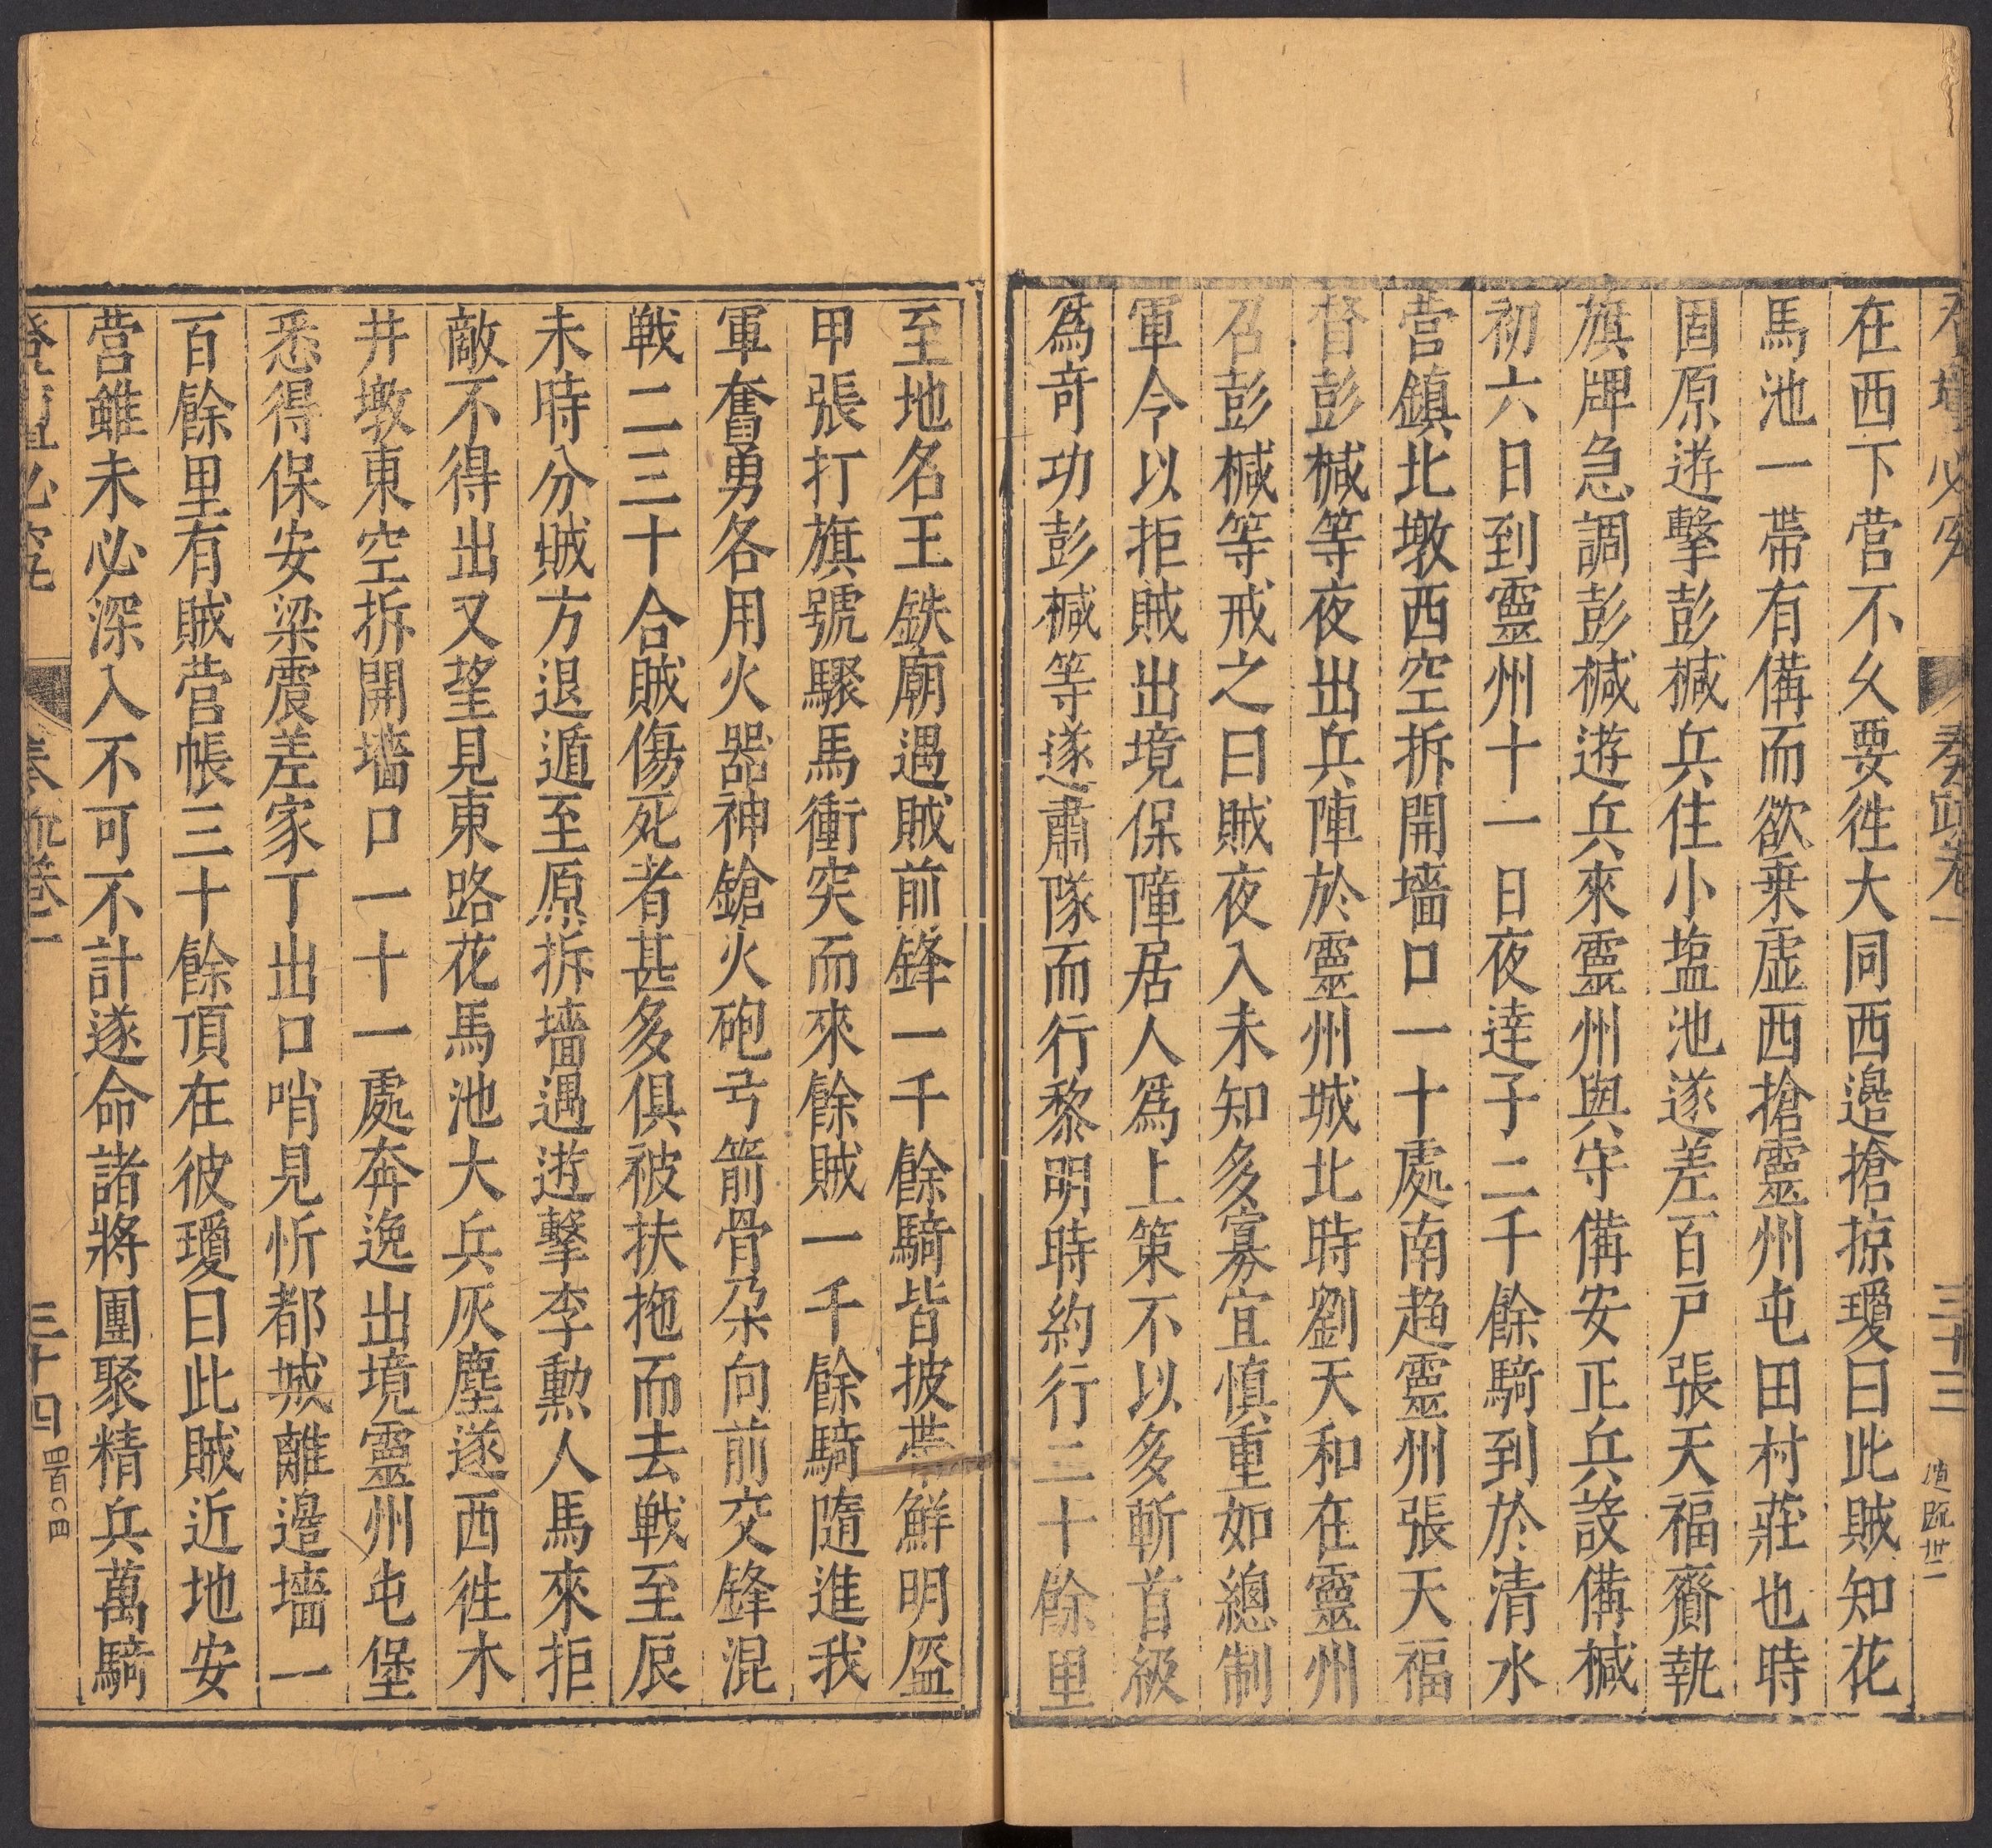 奏疏卷一
三十三
在西下营不久要徃大同西邉搶掠瓊曰此賊知花
馬池一帶有俻而欲乗虚西搶靈州屯田村莊也時
固原遊擊彭椷兵住小塩池遂差百戸張天福賫執
旗牌急調彭椷遊兵來靈州與守俻安正兵設俻椷
初六日到靈州十一日夜達子二千餘騎到於清水
营鎮北墩西空拆開墻口一十處南趋靈州張天福
督彭椷等夜出兵陣於靈州城北時劉天和在靈州
召彭椷等戒之曰賊夜入未知多寡宜慎重如緫制
軍令以拒賊出境保障居人爲上策不以多斬首級
爲奇功彭椷等遂肅隊而行黎明時約行二十餘里
至地名王鉄廟遇賊前鋒一千餘騎皆披帶鮮明盔
甲張打旗號驟馬衝突而來餘賊一千餘騎隨進我
軍奮勇各用火器神鎗火砲弓箭骨朶向前交鋒混
戰二三十合賊傷死者甚多俱被扶拖而去戰至辰
未時分賊方退遁至原拆墻遇遊擊李勲人馬來拒
敵不得出又望見東路花馬池大兵灰塵遂西徃木
井墩東空拆開墻口一十一處奔逸出境靈州屯堡
悉得保安梁震差家丁出口哨見忻都城離邉墻一
百餘里有賊营帳三十餘頂在彼瓊曰此賊近地安
营雖未必深入不可不計遂命諸將團聚精兵萬騎
奏疏卷一
三十四